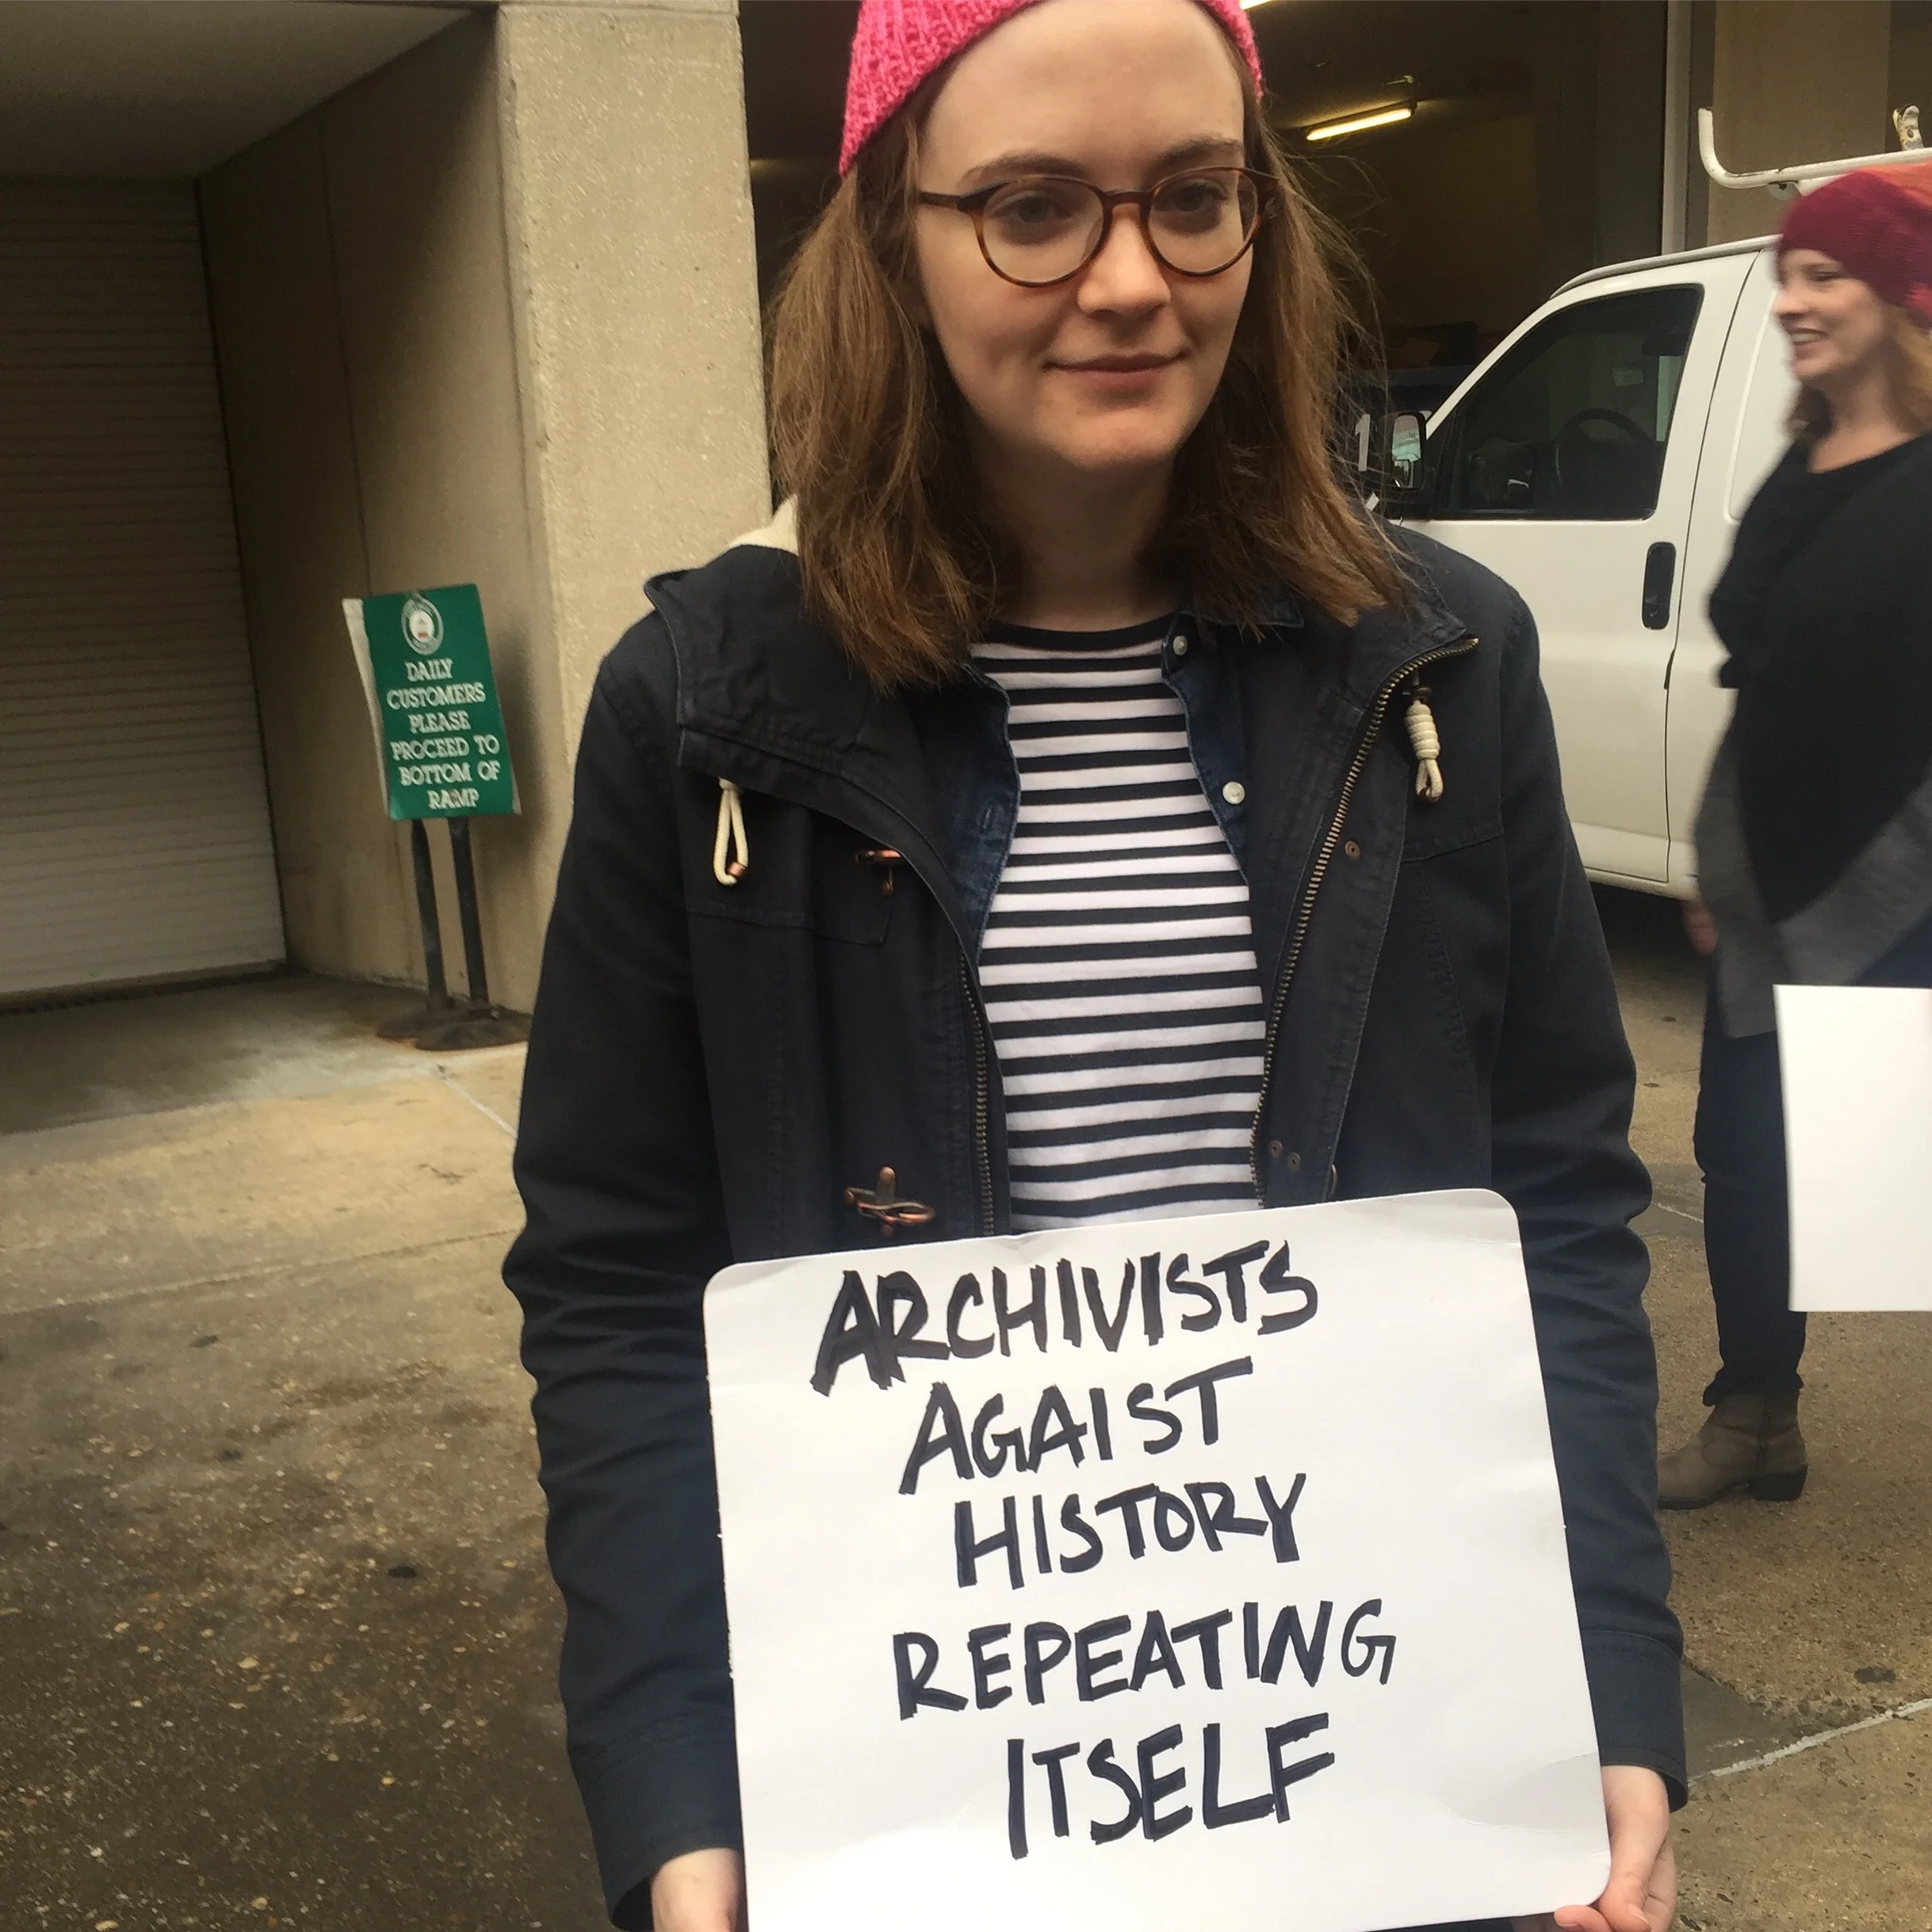 DAILY
CUSTOMERS
PLEASE
PROCEED TO
BOTTOM OF
RAMP
ARCHIVISTS
AGAIST
HISTORY
REPEATING
ITSELF